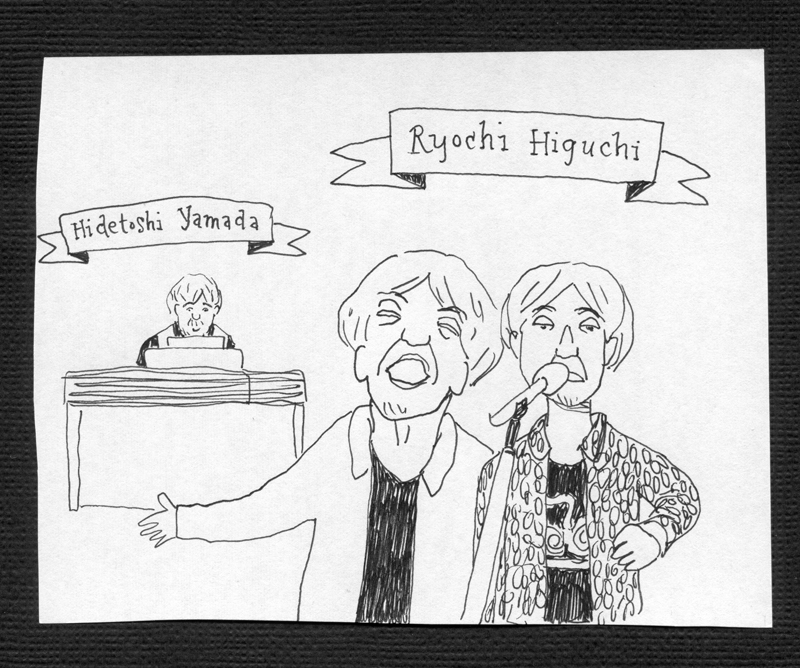 Ryochi Higuchi
Hidetoshi Yamada